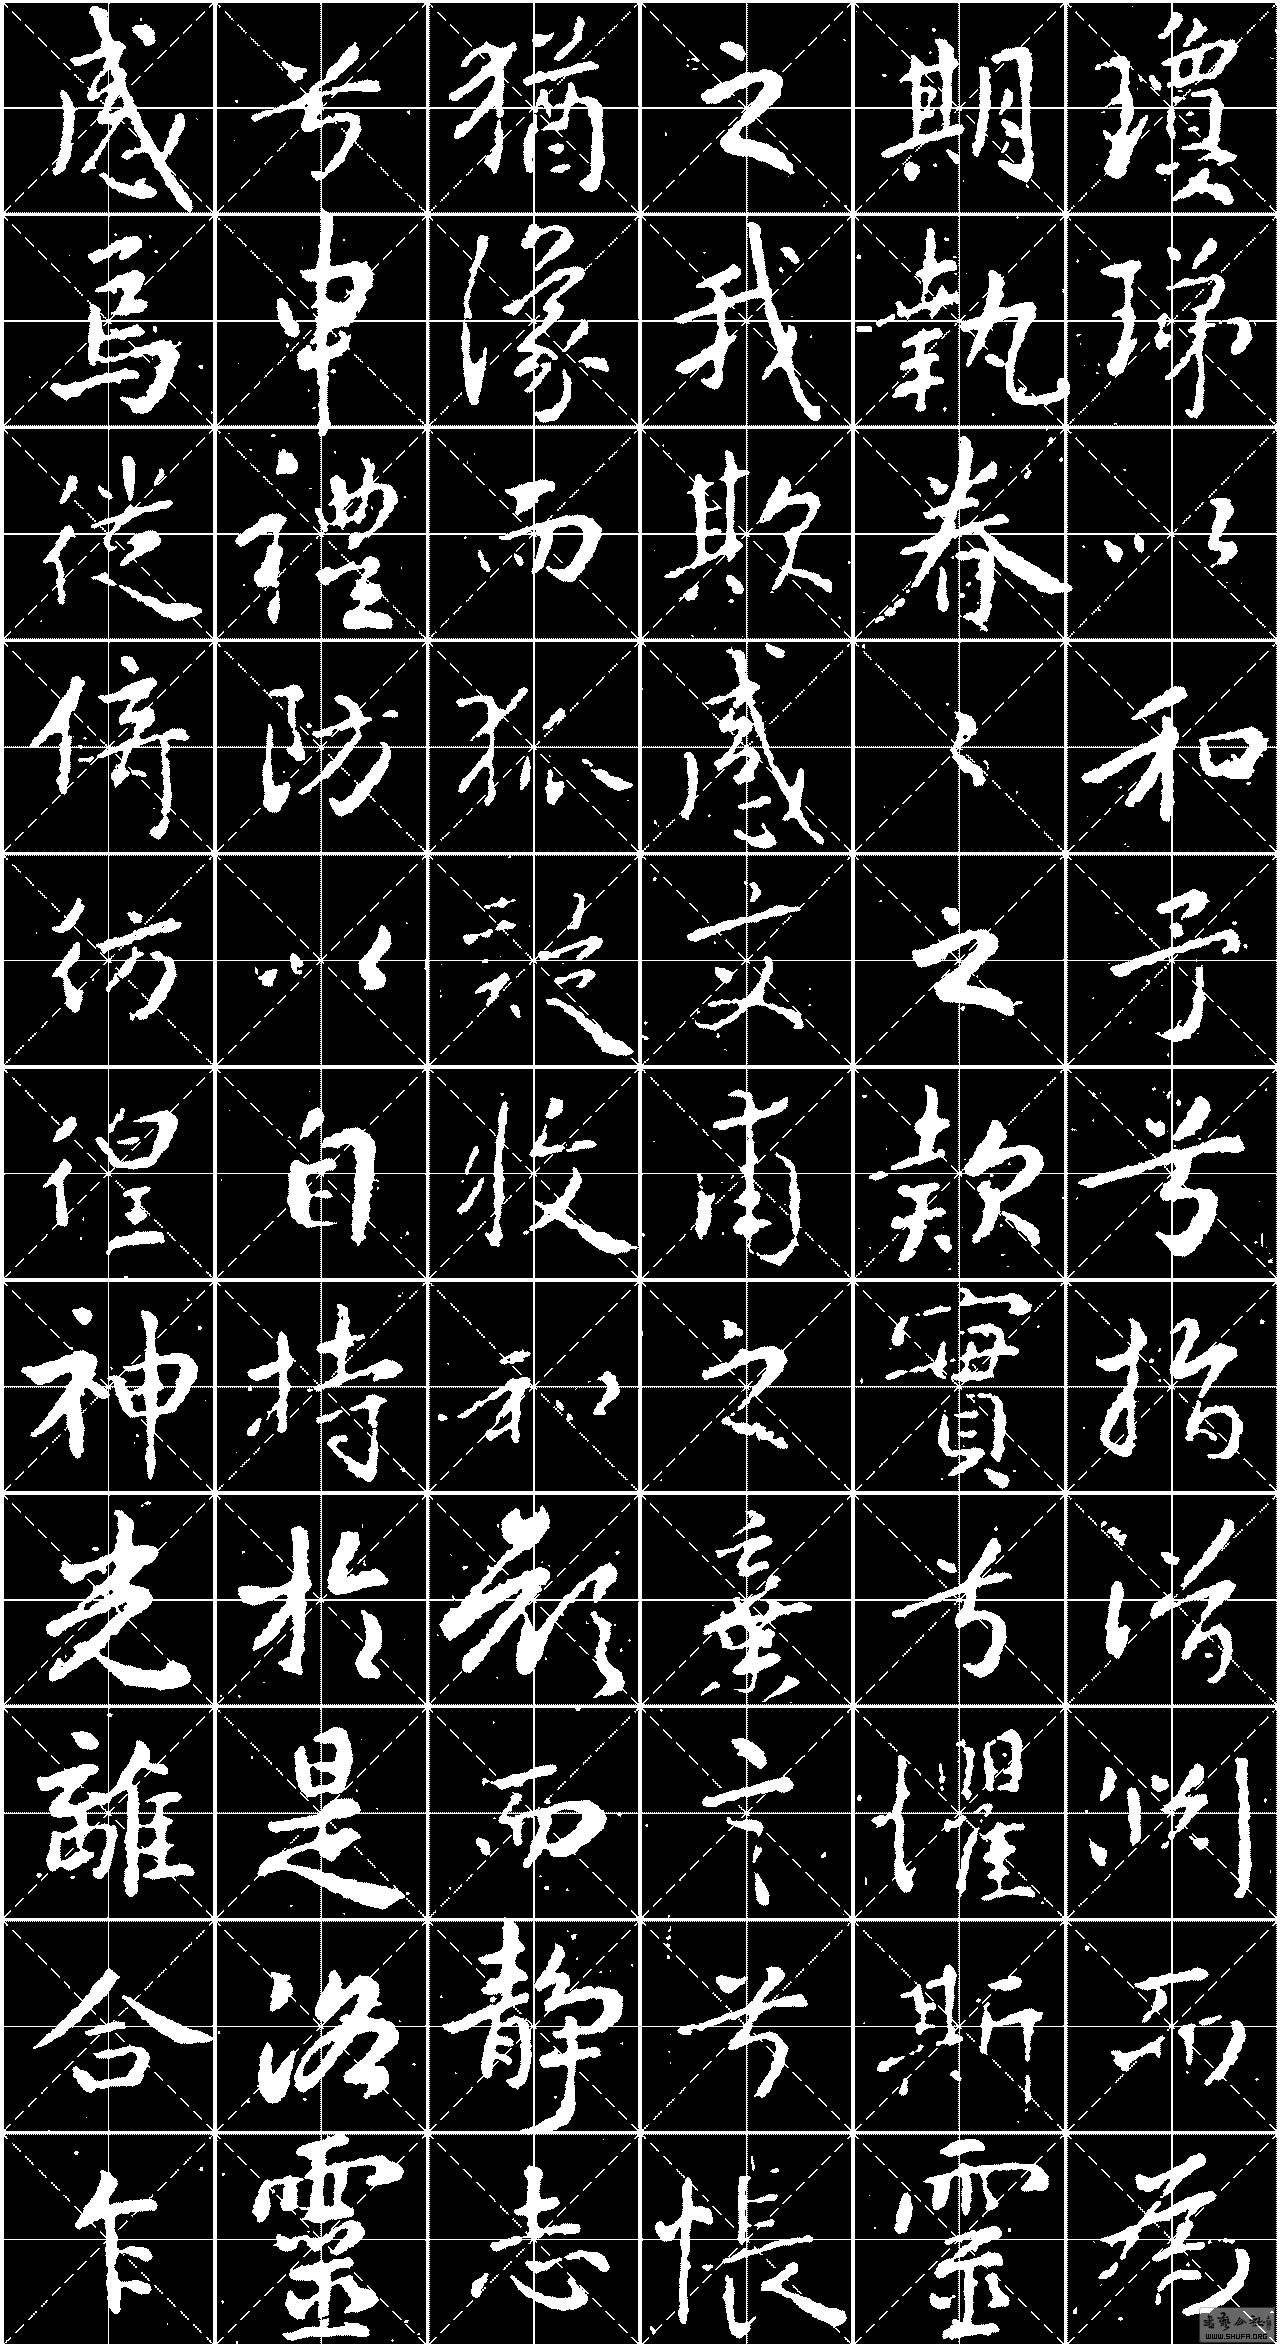 瓊珶以和予兮指潛淵而為
期執眷々之款實兮懼斯靈
之我欺感交甫之棄言兮悵
猶豫而狐疑收和顏而靜志
兮申禮防以自持於是洛靈
感焉徙倚彷徨神光離合乍
WWW.SHUFA.ORG